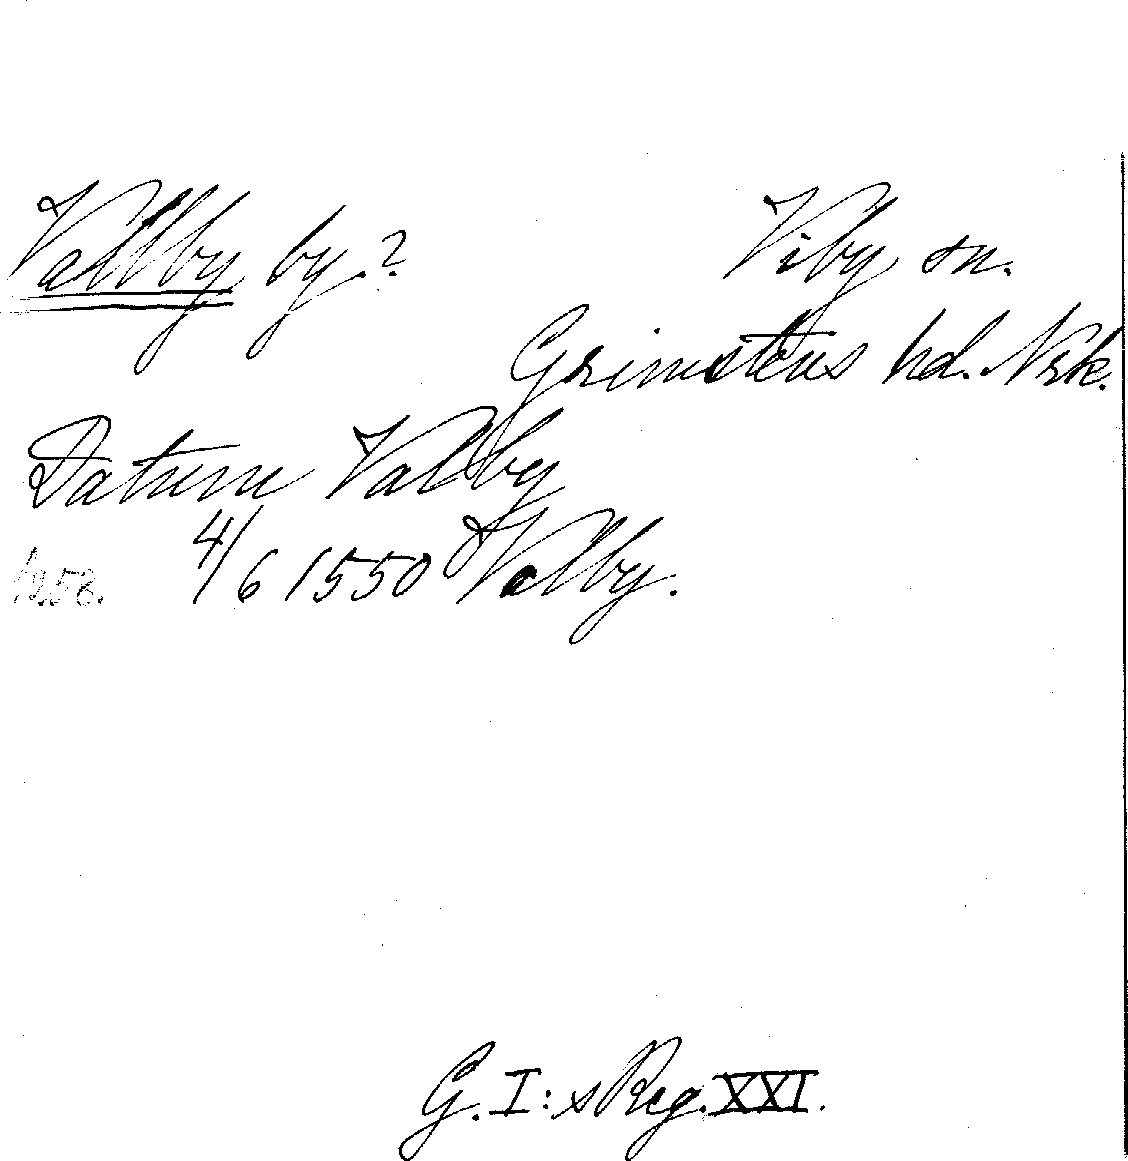 Vallby by.? Viby sn.
Grimstens hd. Nrk.
Datum Valby
4/6 1550 Valby.
G. I:s Reg. XXI.